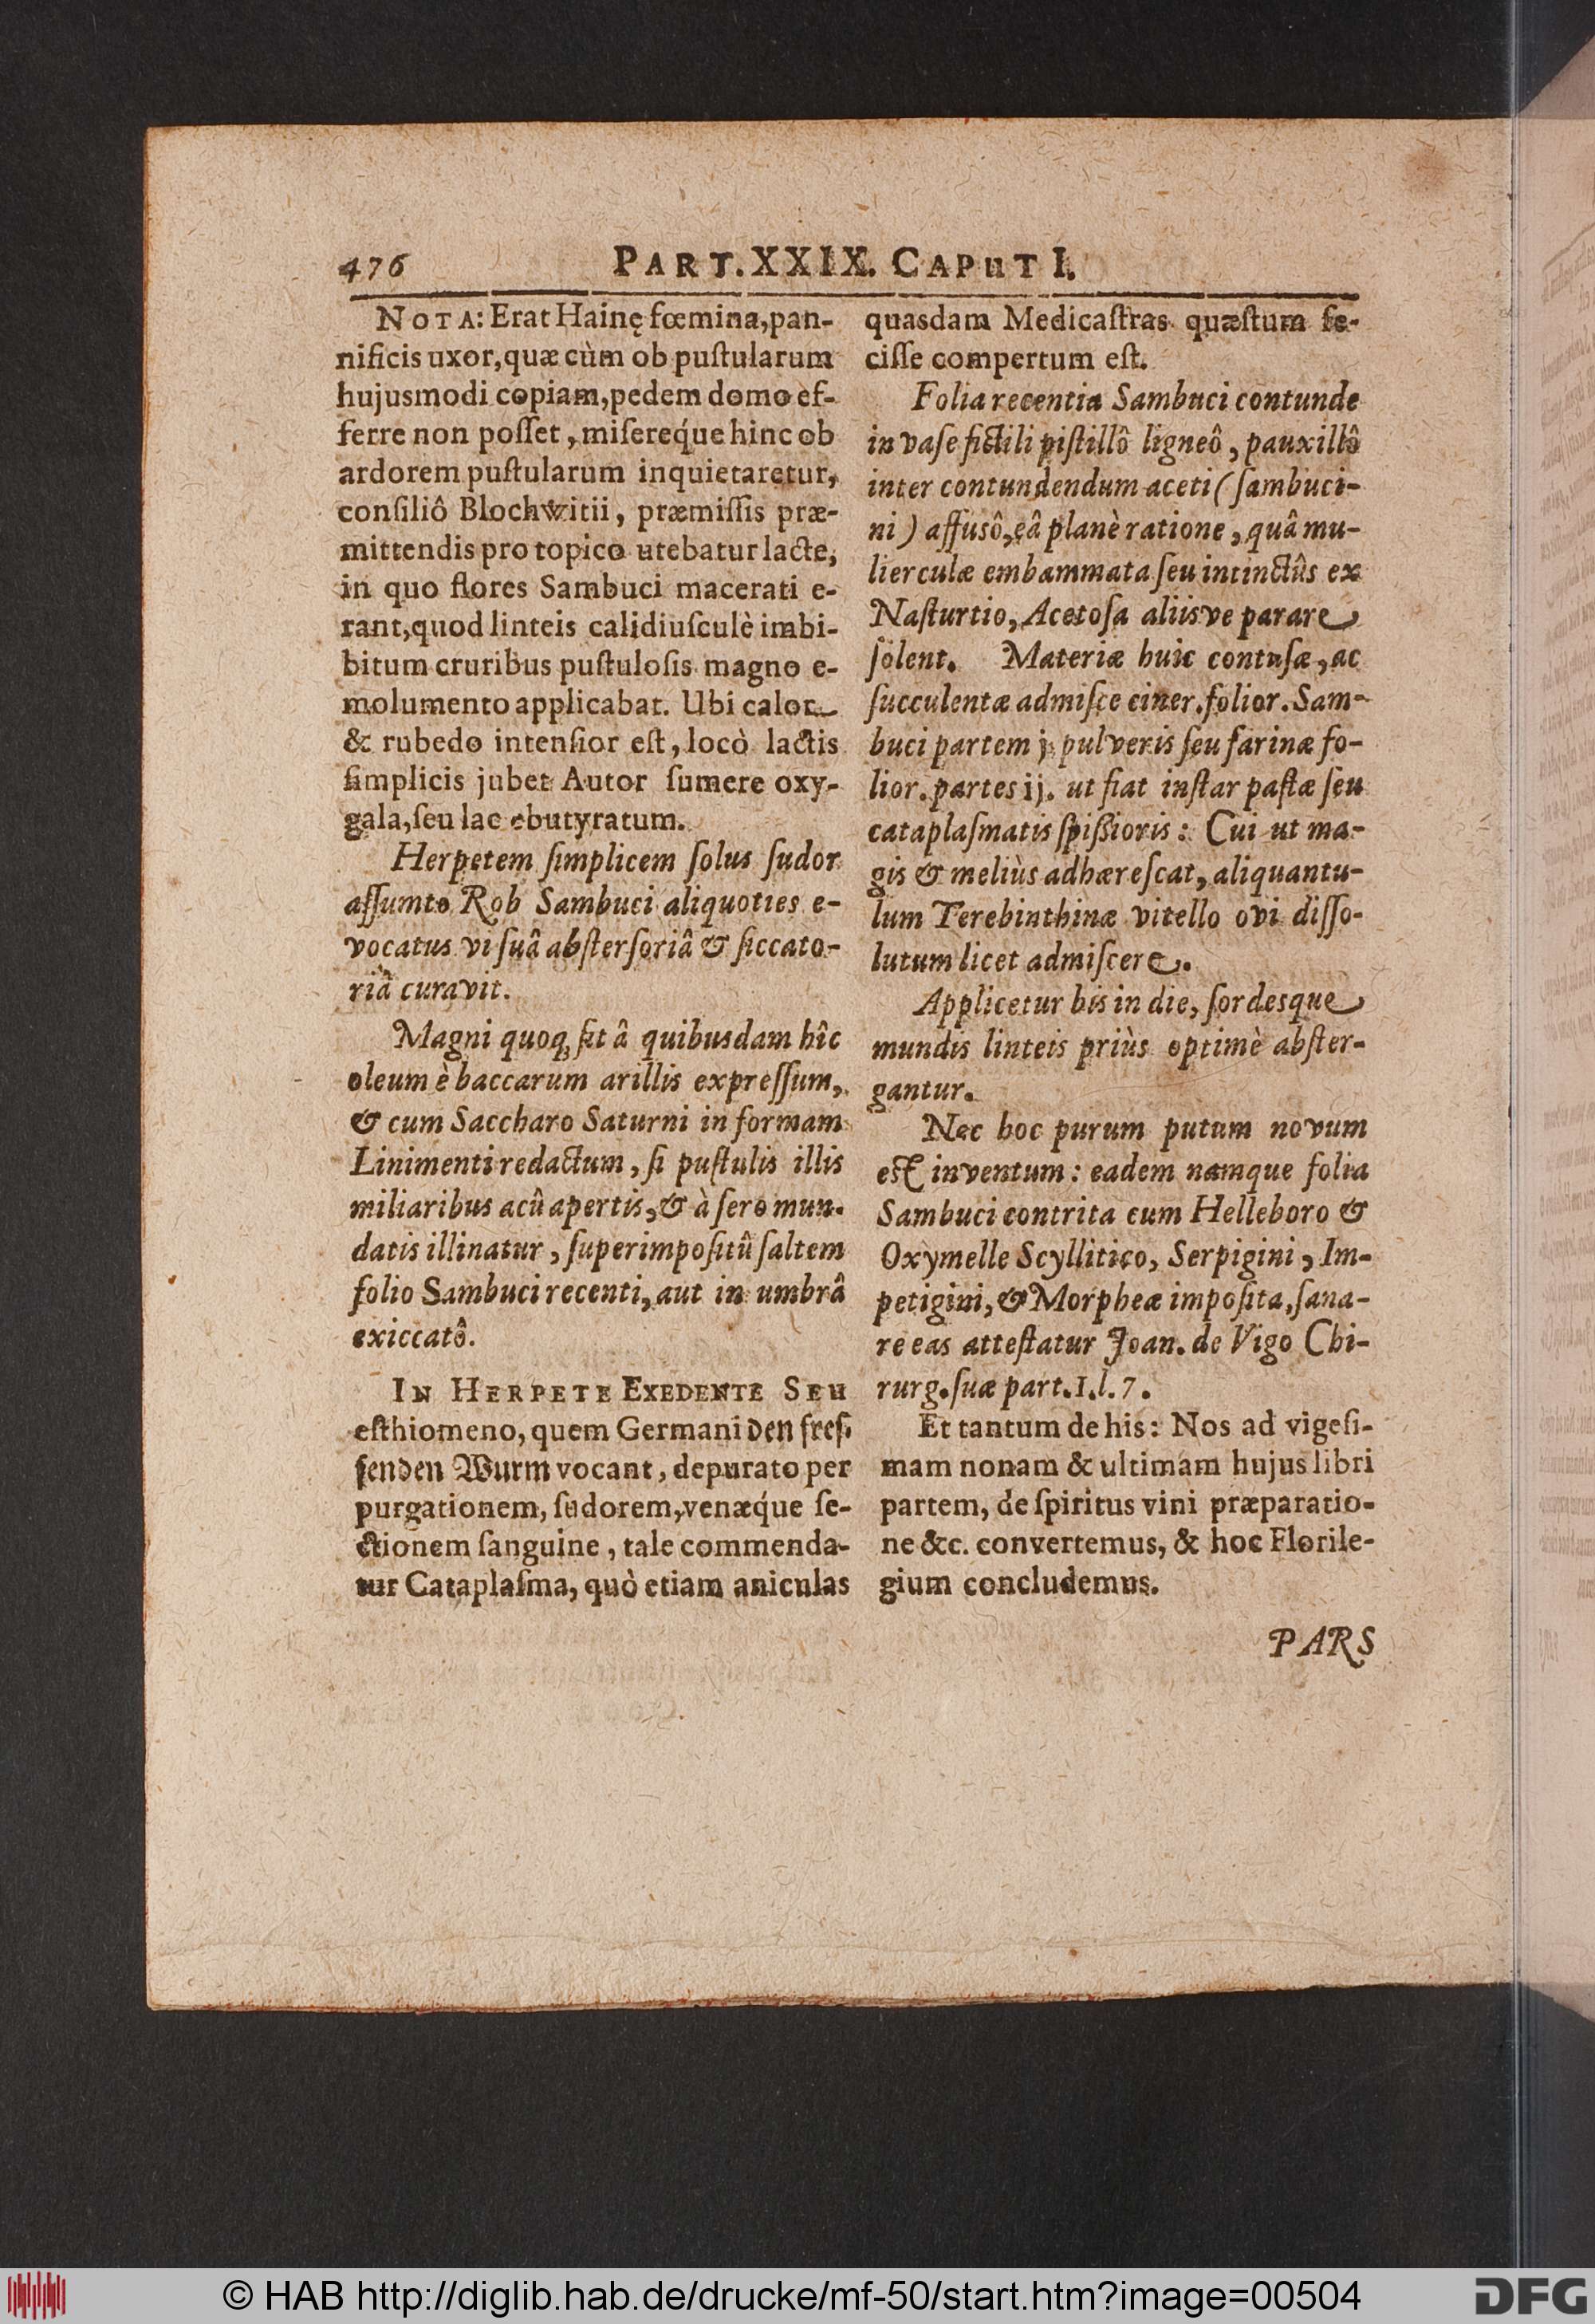 476 PART. XXIX. CAPUT I.
NOTA: Erat Hainę fœmina, pan-
nificis uxor, quæ cùm ob puſtularum
hujusmodi copiam, pedem domo ef-
ferre non poſſet, miſereq́ue hinc ob
ardorem puſtularum inquietaretur,
conſiliô Blochwitii, præmiſſis præ-
mittendis pro topico utebatur lacte,
in quo flores Sambuci macerati e-
rant, quod linteis calidiuſculè imbi-
bitum cruribus puſtuloſis magno e-
molumento applicabat. Ubi calor
& rubedo intenſior eſt, locò lactis
ſimplicis jubet Autor ſumere oxy-
gala, ſeu lac ebutyratum.
Herpetem ſimplicem ſolus ſudor
aſſumto Rob Sambuci aliquoties e-
vocatus vi ſuâ abſterſoriâ & ſiccato-
riâ curavit.
Magni quoq; fit â quibusdam hîc
oleum è baccarum arillis expreſſum,
& cum Saccharo Saturni in formam
Linimenti redactum, ſi puſtulis illis
miliaribus acû apertis, & à ſero mun-
datis illinatur, ſuperimpoſitû ſaltem
folio Sambuci recenti, aut in umbrâ
exiccatô.
IN HERPETE EXEDENTE SEU
eſthiomeno, quem Germani den freſ-
ſenden Wurm vocant, depurato per
purgationem, ſudorem, venæq́ue ſe-
ctionem ſanguine, tale commenda-
tur Cataplaſma, quò etiam aniculas
quasdam Medicaſtras quæſtum fe-
ciſſe compertum eſt.
Folia recentia Sambuci contunde
in vaſe fictili piſtillô ligneô, pauxillô
inter contundendum aceti (ſambuci-
ni) affusô, eâ planè ratione, quâ mu-
lierculæ embammata ſeu intinctûs ex
Naſturtio, Acetoſa aliisve parare
ſolent. Materiæ huic contuſæ, ac
ſucculentæ admiſce ciner. folior. Sam-
buci partem j. pulveris ſeu farinæ fo-
lior. partes ij. ut fiat inſtar paſtæ ſeu
cataplaſmatis ſpiſſioris: Cui ut ma-
gis & meliùs adhæreſcat, aliquantu-
lum Terebinthinæ vitello ovi diſſo-
lutum licet admiſcere.
Applicetur bis in die, ſordesque
mundis linteis priùs optimè abſter-
gantur.
Nec hoc purum putum novum
eſt inventum: eadem namque folia
Sambuci contrita cum Helleboro &
Oxymelle Scyllitico, Serpigini, Im-
petigini, & Morpheæ impoſita, ſana-
re eas atteſtatur Joan. de Vigo Chi-
rurg. ſuæ part. 1. l. 7.
Et tantum de his: Nos ad vigeſi-
mam nonam & ultimam hujus libri
partem, de ſpiritus vini præparatio-
ne &c. convertemus, & hoc Florile-
gium concludemus.
PARS
© HAB http://diglib.hab.de/drucke/mf-50/start.htm?image=00504
DFG